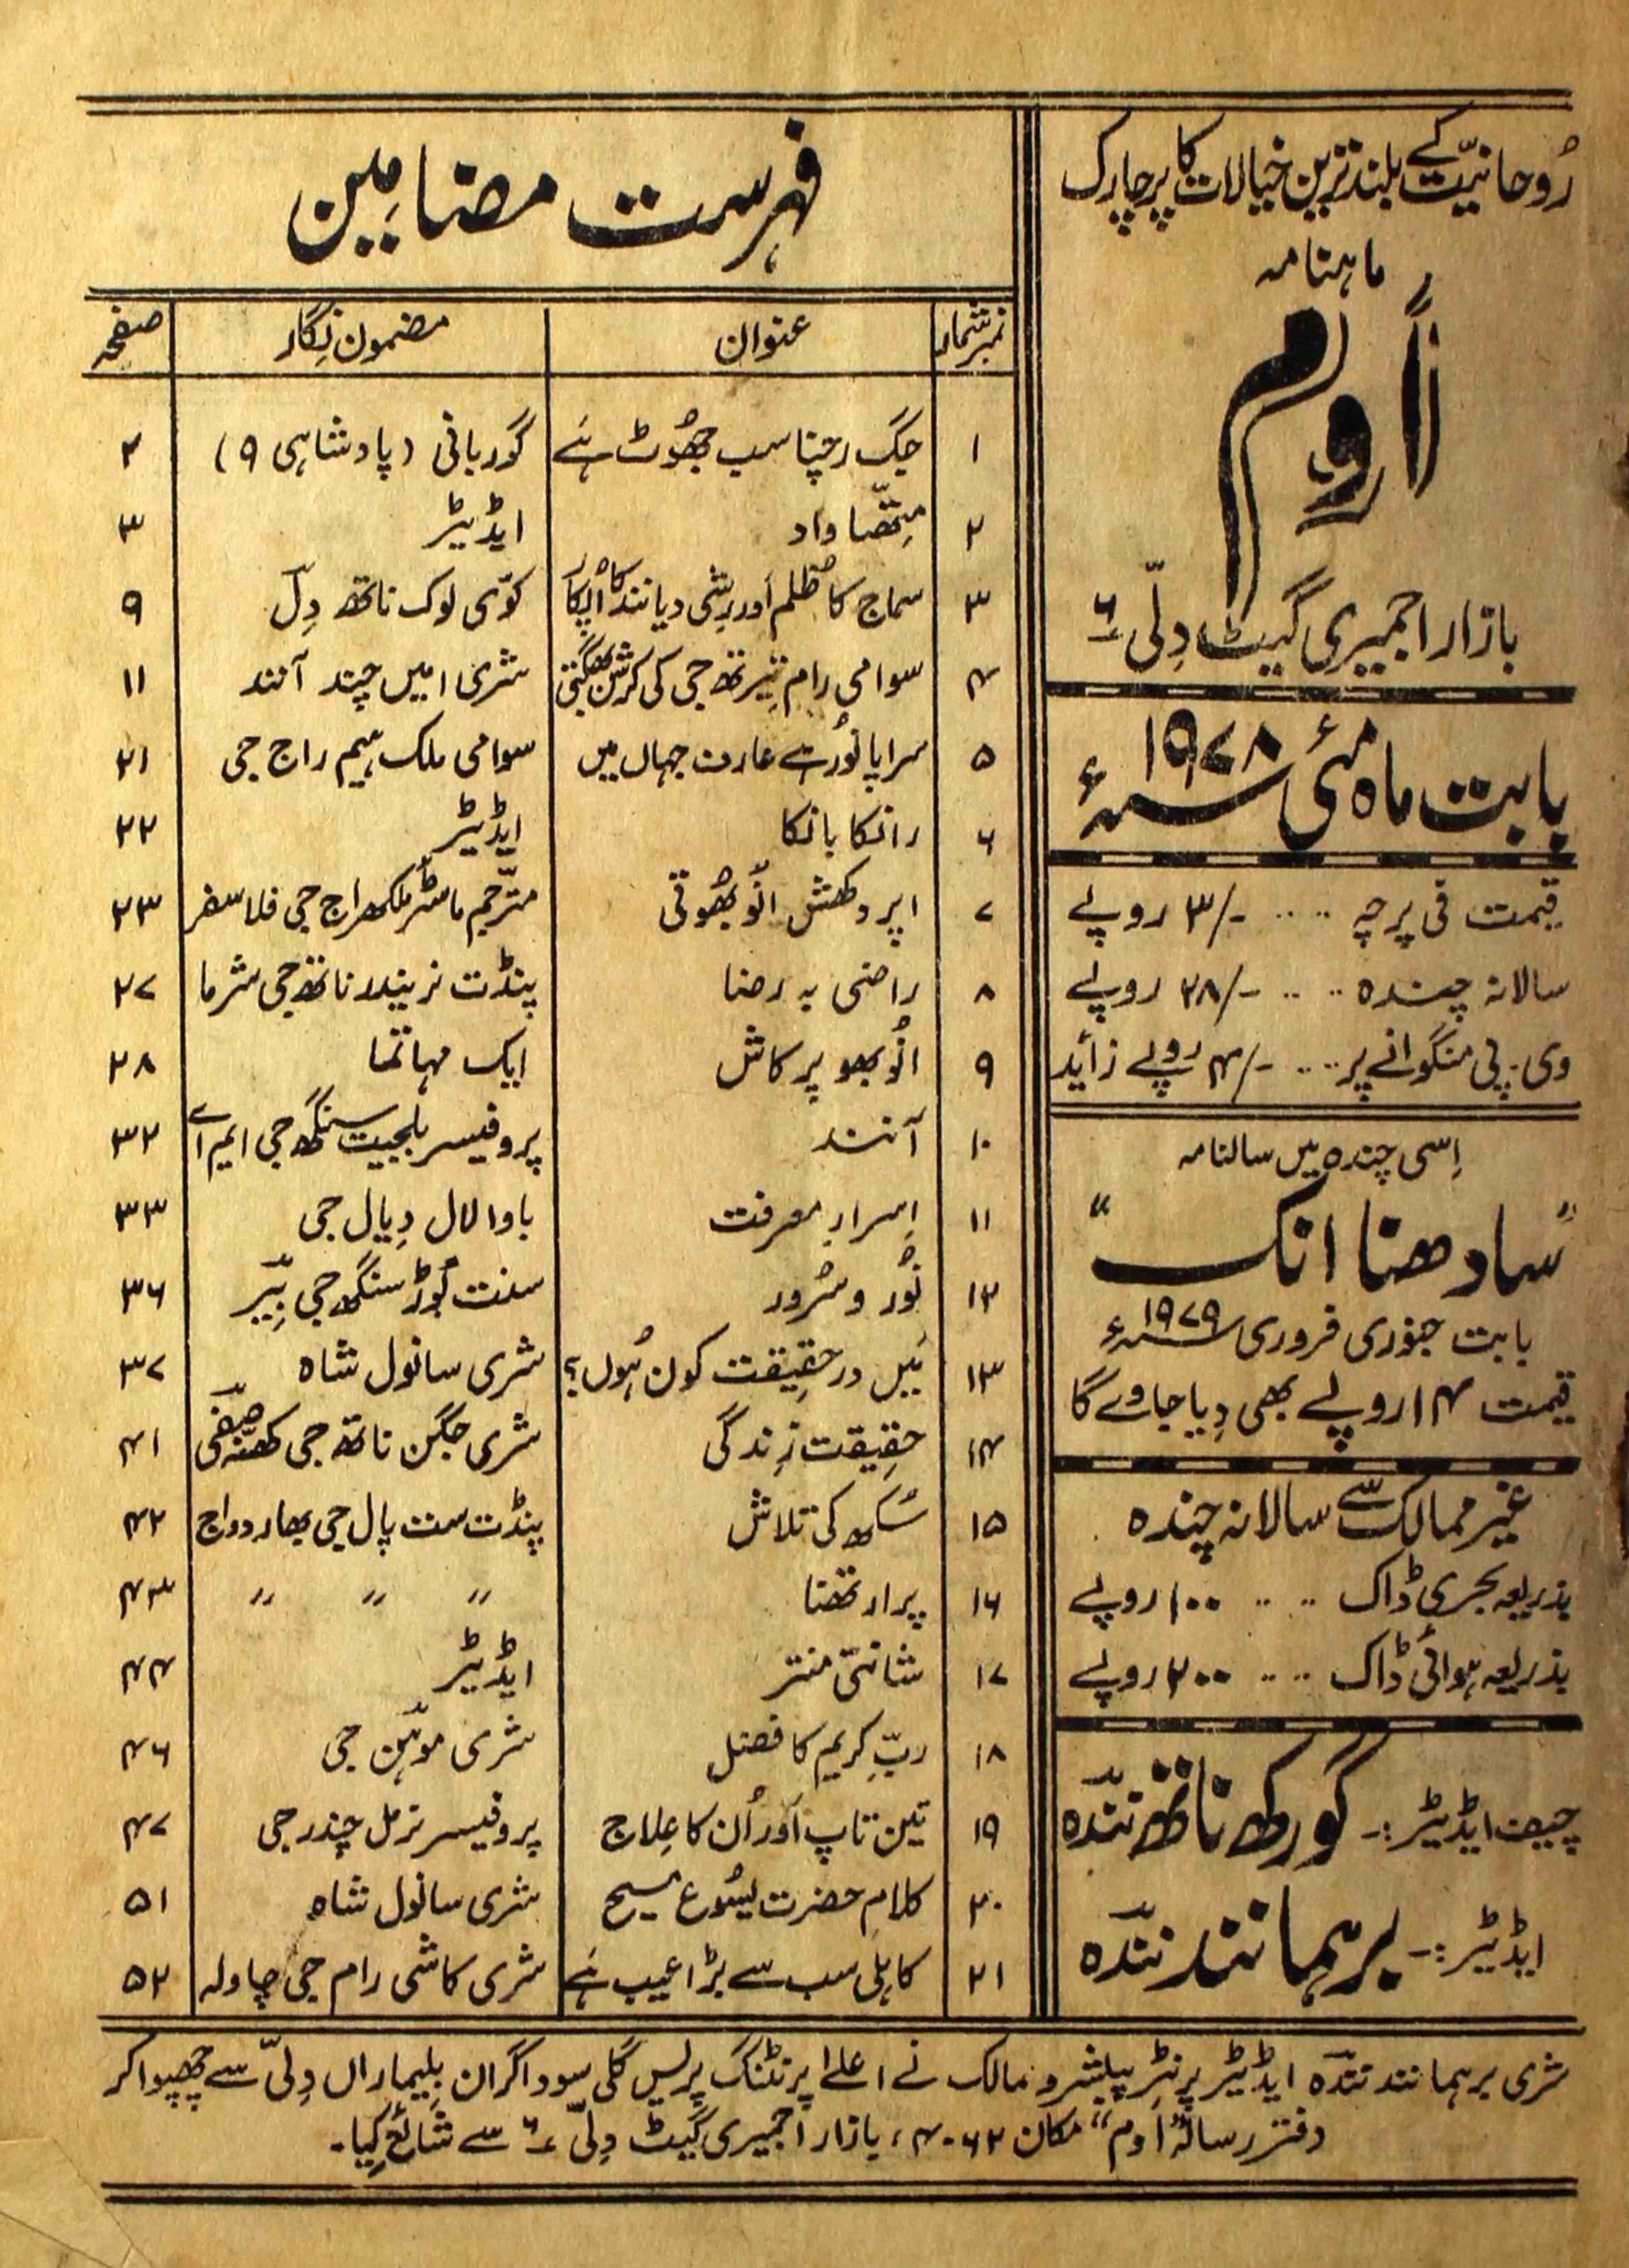 رُوحانیّت کے بلند ترین خیالات کا پرچارک
ماہنامہ
اوم
بازار اجمیری گیٹ دِلّی ۶
بابت ماہ مئی ۱۹۷۸ء
قیمت فی پرچہ .... -/۳ روپے
سالانہ چندہ .... -/۲۸ روپے
وی۔پی منگوانے پر .... -/۴ روپے زائد
اِسی چندہ میں سالنامہ
"سادھنا انک"
بابت جنوری فروری ۱۹۷۹ء
قیمت ۱۴ روپے بھی دِیا جاوے گا
غیر ممالک سے سالانہ چندہ
بذریعہ بحری ڈاک .... ۱۰۰ روپے
بذریعہ ہوائی ڈاک .... ۲۰۰ روپے
چیف ایڈیٹر:۔ گورکھ ناتھ نندہ
ایڈیٹر:۔ برہمانند نندہ
فہرست مضامین
نمبرشمار عنوان مضمون نِگار صفحہ
۱ جگ رچنا سب جھُوٹ ہے گوربانی (پادشاہی ۹) ۲
۲ مِتھیا واد ایڈیٹر ۳
۳ سماج کا ظُلم اَور رِشی دیانند کا اُپکار کوّی لوک ناتھ دِل ۹
۴ سوامی رام تیرتھ جی کی کرشن بھگتی شری امیں چند آنند ۱۱
۵ سراپا نُور ہے عارف جہاں میں سوامی ملک ہیم راج جی ۲۱
۶ رانکا بانکا ایڈیٹر ۲۲
۷ اپروکھش انُوبھُوتی مترجم ماسٹر ملکھراج جی فلاسفر ۲۳
۸ راضی بہ رضا پنڈت نریندر ناتھ جی شرما ۲۷
۹ انُوبھو پرکاش ایک مہاتما ۲۸
۱۰ آنند پروفیسر بلجیت سنگھ جی ایم اے ۳۲
۱۱ اسرارِ معرفت باوا لال دِیال جی ۳۳
۱۲ نُور و سُرور سنت کُوڑ سنگھ جی بِیر ۳۶
۱۳ مَیں درحقیقت کون ہُوں؟ شری سانول شاہ ۳۷
۱۴ حقیقت زِندگی شری جگن ناتھ جی کھنہ صفی ۴۱
۱۵ سُکھ کی تلاش پنڈت ست پال جی بھاردواج ۴۲
۱۶ پرارتھنا " " " ۴۳
۱۷ شانتی منتر ایڈیٹر ۴۴
۱۸ ربِّ کریم کا فضل شری موہن جی ۴۶
۱۹ تین تاپ اَور اُن کا عِلاج پروفیسر نرمل چندر جی ۴۷
۲۰ کلام حضرت یسُوع مسیح شری سانول شاہ ۵۱
۲۱ کاہلی سب سے بڑا عیب ہے شری کاشی رام جی چاولہ ۵۲
شری برہمانند نندہ ایڈیٹر پرنٹر پبلیشر و مالک نے اعلےٰ پرنٹنگ پریس گلی سوداگران بلیماراں دِلیّ سے چھپوا کر
دفتر رسالہ "اوم" مکان ۴۰۶۲، بازار اجمیری گیٹ دِلیّ ۶ سے شائع کِیا۔